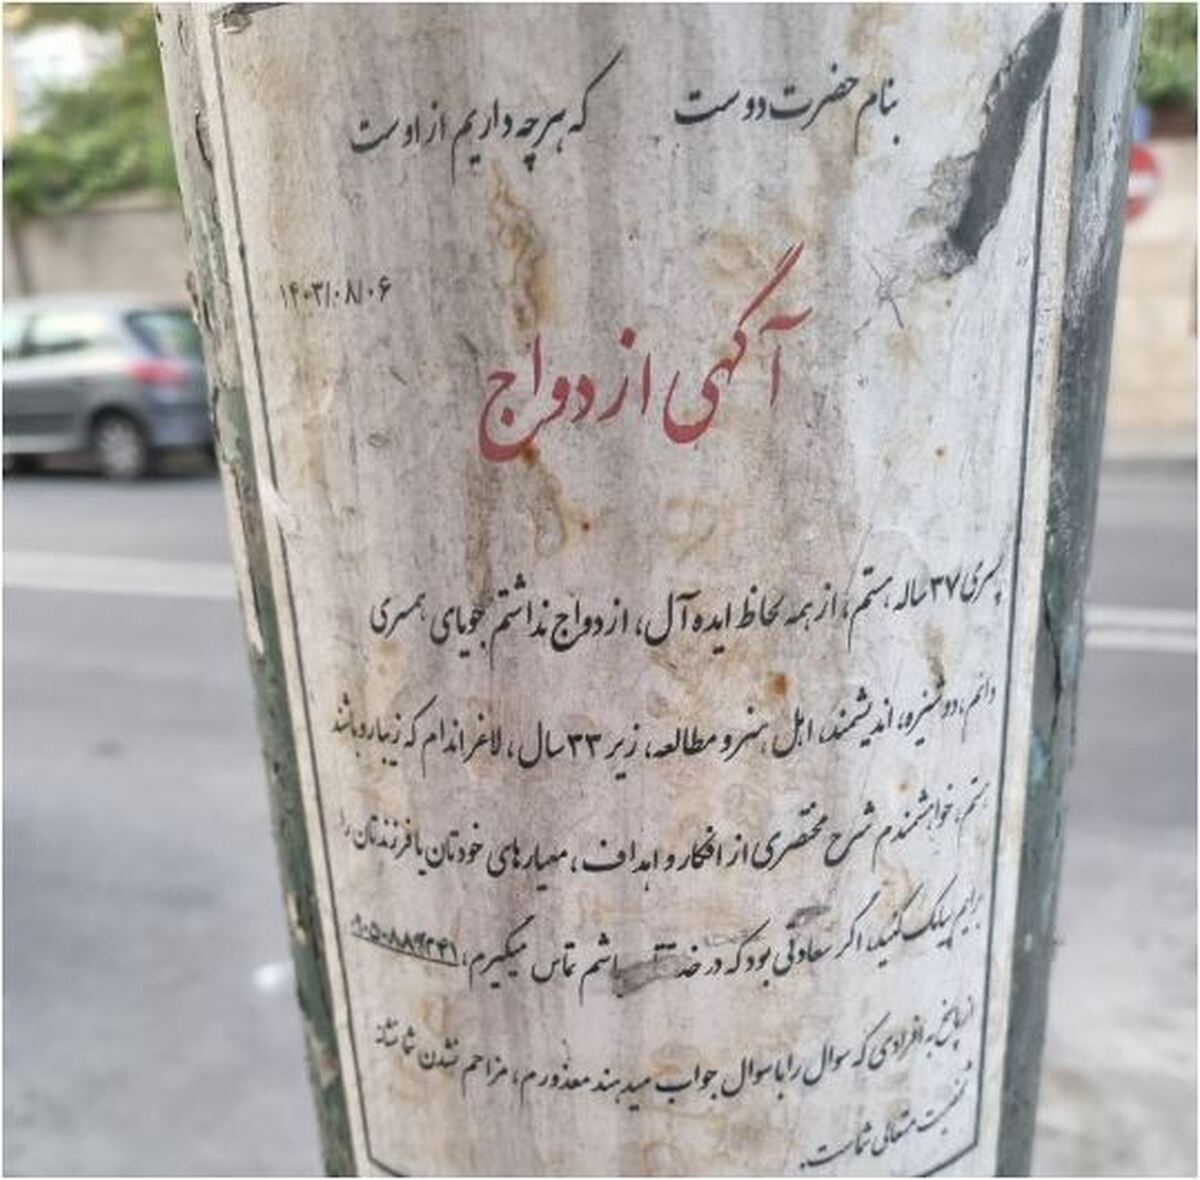 بنام حضرت دوست که هرچه داریم از اوست
۱۴۰۳/۰۸/۰۶
آگهی ازدواج
پسری ۳۷ ساله هستم، از همه لحاظ ایده آل، ازدواج نداشتم جویای همسری
دائم، دوشیزه، اندیشمند، اهل هنر و مطالعه، زیر ۳۳ سال، لاغر اندام که زیبارو باشد
هستم، خواهشمندم شرح مختصری از افکار و اهداف، معیارهای خودتان یا فرزندتان را
برایم پیامک کنید، اگر سعادتی بود که در باشم تماس میگیرم،
از پاسخ به افرادی که سوال را با سوال جواب میدهند معذورم، مزاحم نشدن شما نشانه
شخصیت متعالی شماست.